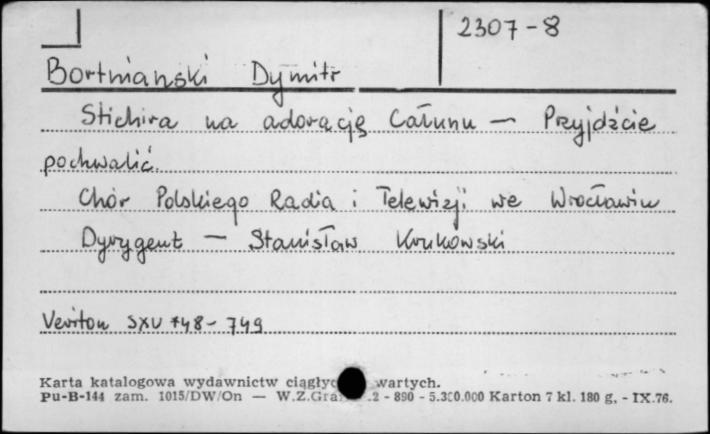 2307-8
Bortniański Dymitr
Stichira na adorację Całunu — Przyjdźcie
pochwalić.
Chór Polskiego Radia i Telewizji we Wrocławiu
Dyrygent — Stanisław Krukowski
Veriton SXV 748-749
Karta katalogowa wydawnictw wartych.
Pu-B-144 zam. 1015/DW/On — W.Z.Graf. .2 - 890 - 5.300.000 Karton 7 kl. 180 g. - IX.76.